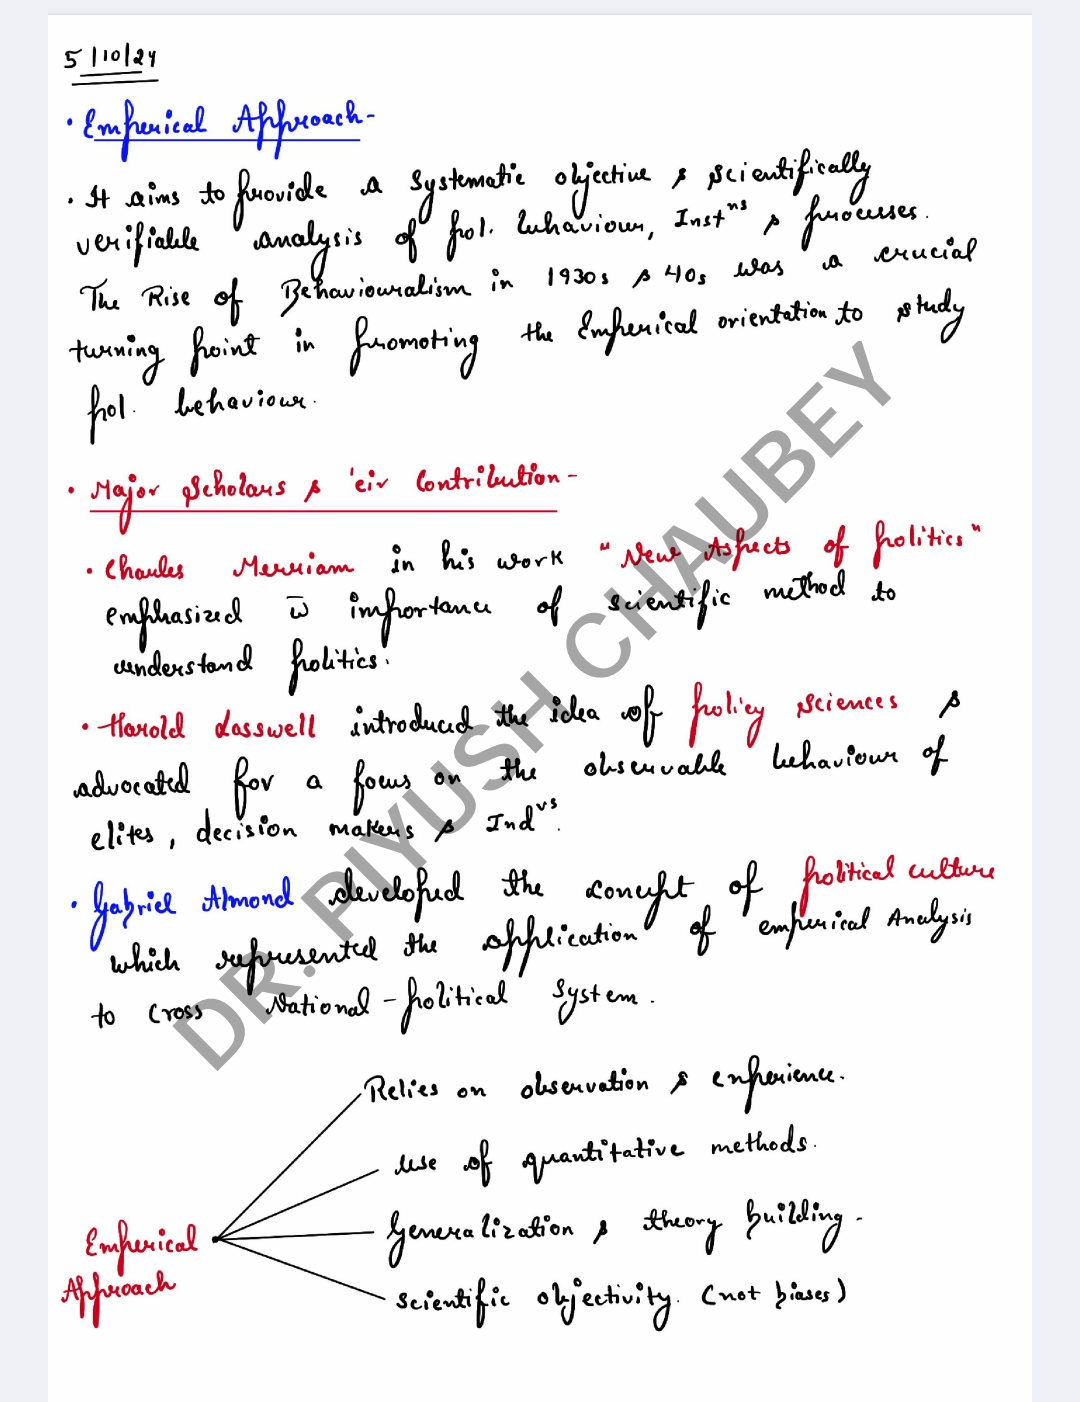 5/10/24
• Emperical Approach-
• It aims to provide a systematic objective & scientifically
verifiable analysis of pol. behaviour, Instⁿˢ & processes.
The Rise of Behaviouralism in 1930s & 40s was a crucial
turning point in promoting the Emperical orientation to study
pol. behaviour.
• Major Scholars & 'eir Contribution-
• Charles Merriam in his work "New Aspects of politics"
emphasized w̅ importance of scientific method to
understand politics.
• Harold Lasswell introduced the idea of policy sciences &
advocated for a focus on the observable behaviour of
elites, decision makers & Indᵛˢ.
• Gabriel Almond developed the concept of political culture
which represented the application of emperical Analysis
to Cross National-political System.
Relies on observation & experience.
use of quantitative methods.
Generalization & theory building-
Emperical
Approach
scientific objectivity. (not biases)
DR. PIYUSH CHAUBEY